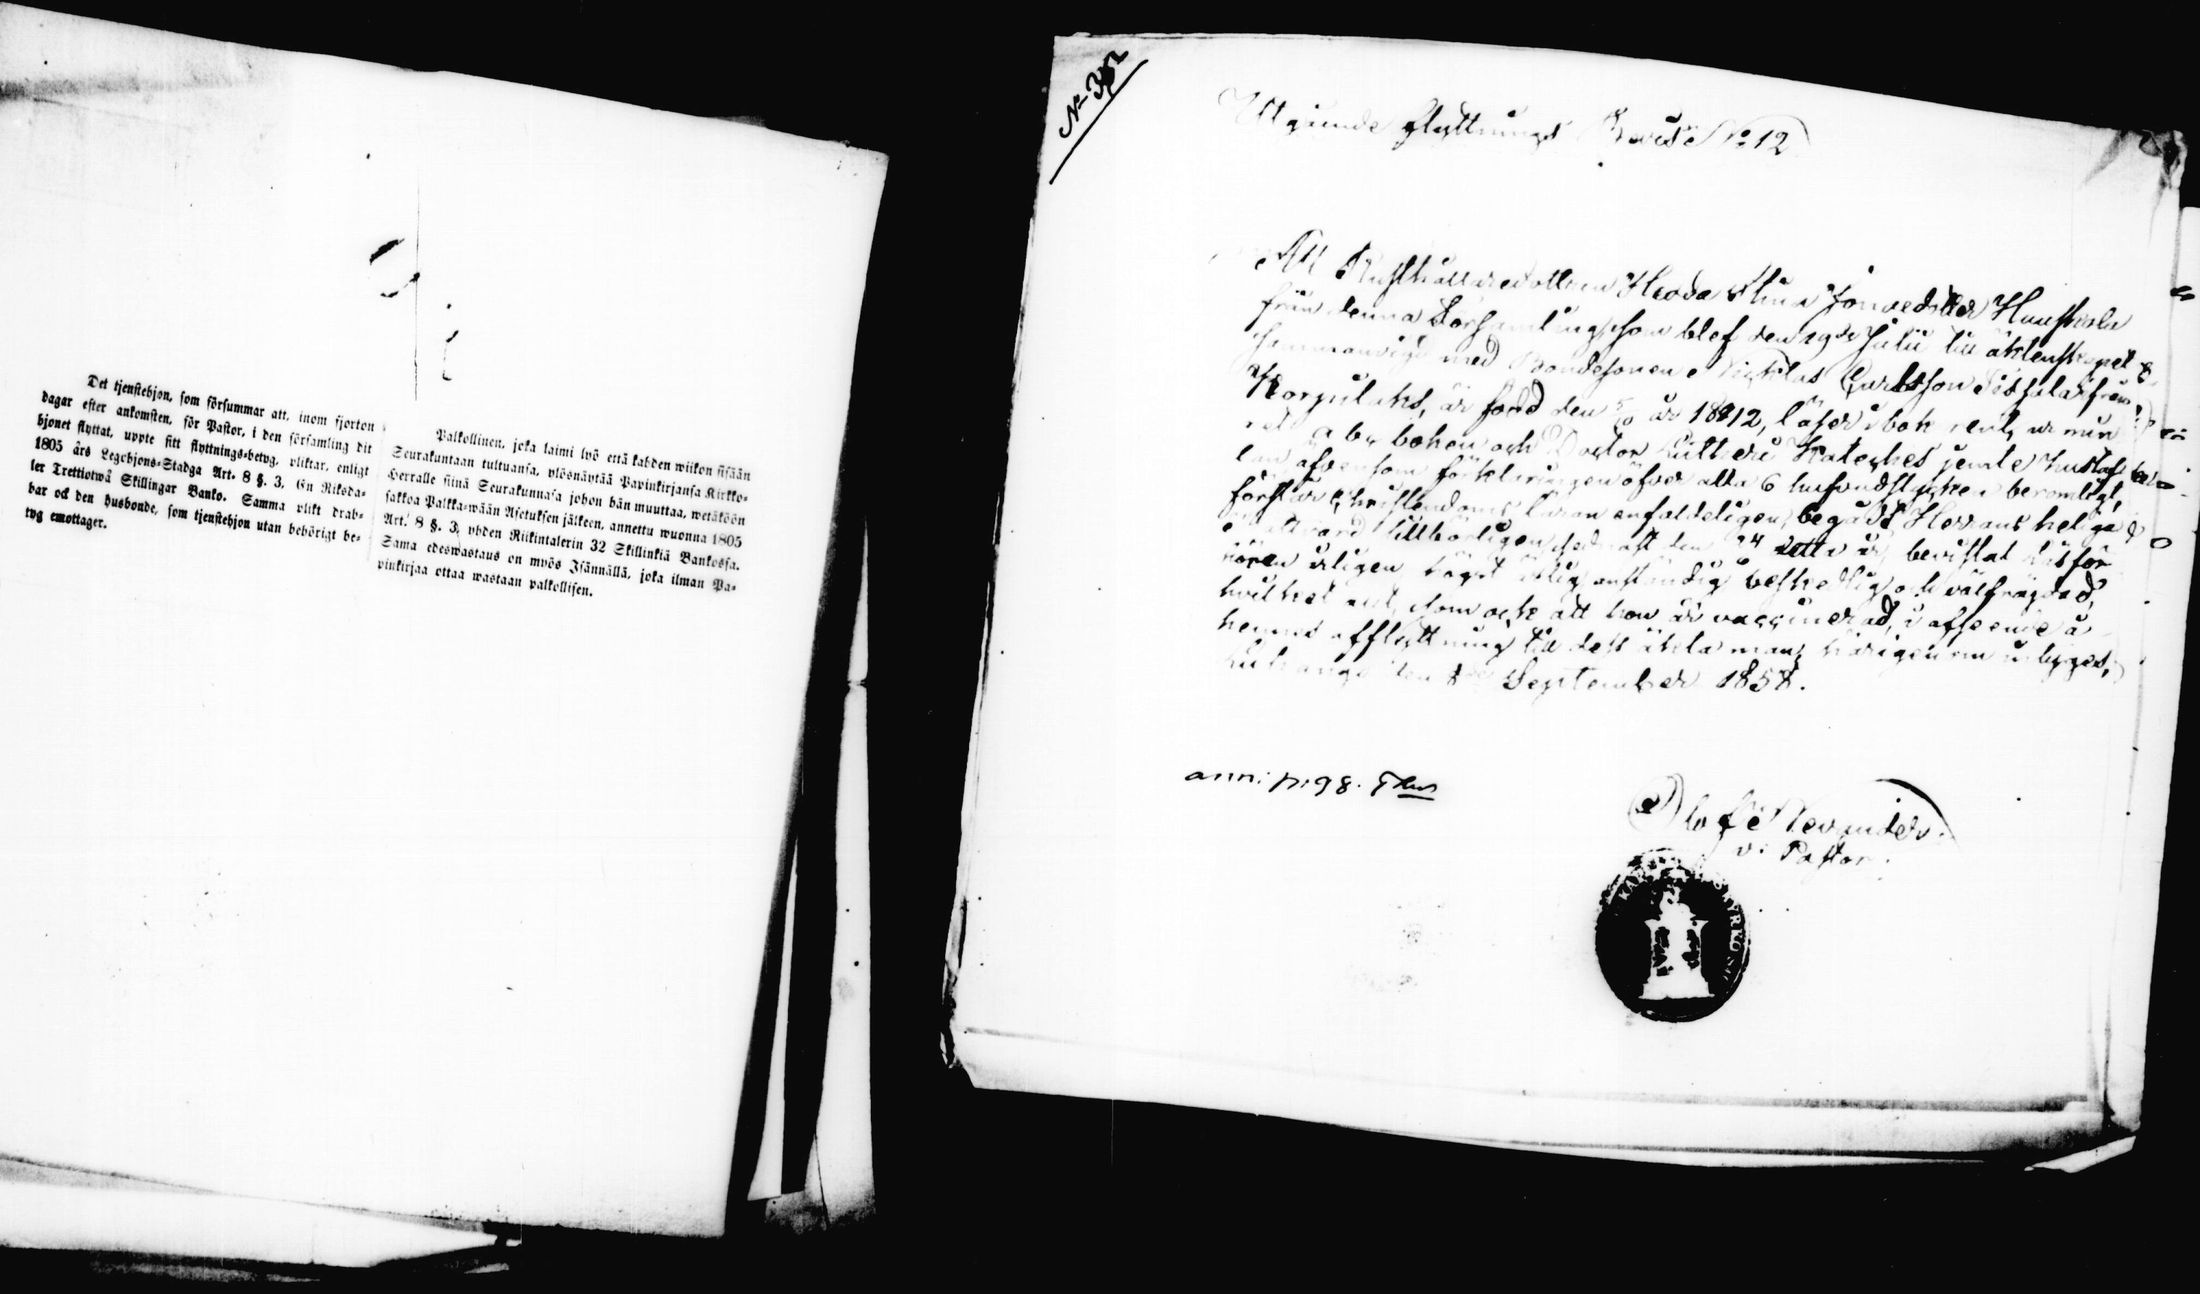 Det tjenstehjon, som försummar att, inom fjorton
dagar efter ankomsten, för Pastor, i den församling dit
hjonet flyttat, uppte sitt flyttnings-betyg, pliktar, enligt
1805 års Legohjons-Stadga Art. 8 §. 3, En Riksda-
ler Trettiotwå Skillingar Banko. Samma plikt drab-
bar ock den husbonde, som tjenstehjon utan behörigt be-
tyg emottager.
Palkollinen, joka laimi lyö että kahden wiikon sisään
Seurakuntaan tultuansa, ylösnäyttää Papinkirjansa Kirkko-
Herralle siinä Seurakunnasa johon hän muuttaa, wetäköön
sakkoa Palkka-wään Asetuksen jälkeen, annettu wuonna 1805
Art. 8 §. 3, yhden Riikintalerin 32 Skillinkiä Bankossa.
Sama edeswastaus on myös Isännällä, joka ilman Pa-
pinkirjaa ottaa wastaan palkollisen.
No 352
Utgående flyttnings Bevis No 12
Att Rusthållaredottren Heda Stina Honskola
från denna Församling, som blef den 19de Julii till äktenskapet
sammanvigd med Bondesonen Nicklas Carlsson från
Korpulaks, är född den 5/10 år 1812, läser i bok rent, ur min
net a b c boken och Doctor Lutheri Kateches jemte hustafe
lan, äfvensom förklaringen öfver alla 6 hufvudstycken beromligt,
förstår Christendoms läran enfaldeligen, begått Herrans heliga
nattvard tillbörligen sednast den 24 år, bevistat läsför
hören årligen, högst ärlig, anständig beskedlig och välfrägdad,
hvilket allt, som ock att hon är vaccinerad, i afseende å
hennes afflyttning till dess äkta man, härigenom intygas,
den September 1858.
anni. p. 98.
Olof Nevander
v. Pastor.
KYRKO